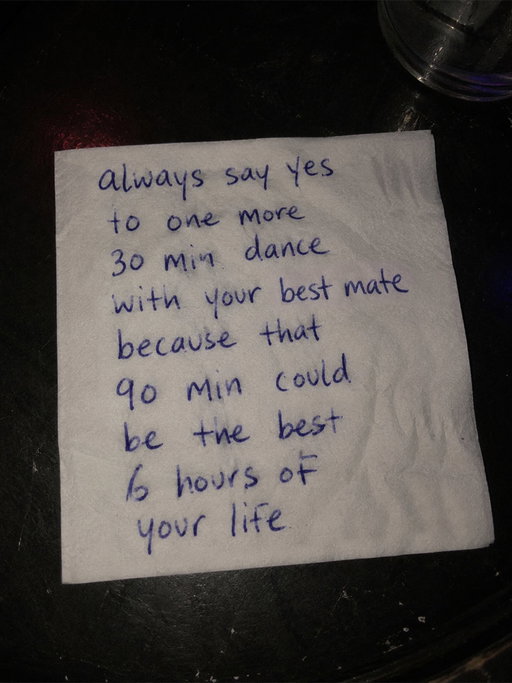 always say yes
to one more
30 min dance
with your best mate
because that
90 min could
be the best
6 hours of
your life